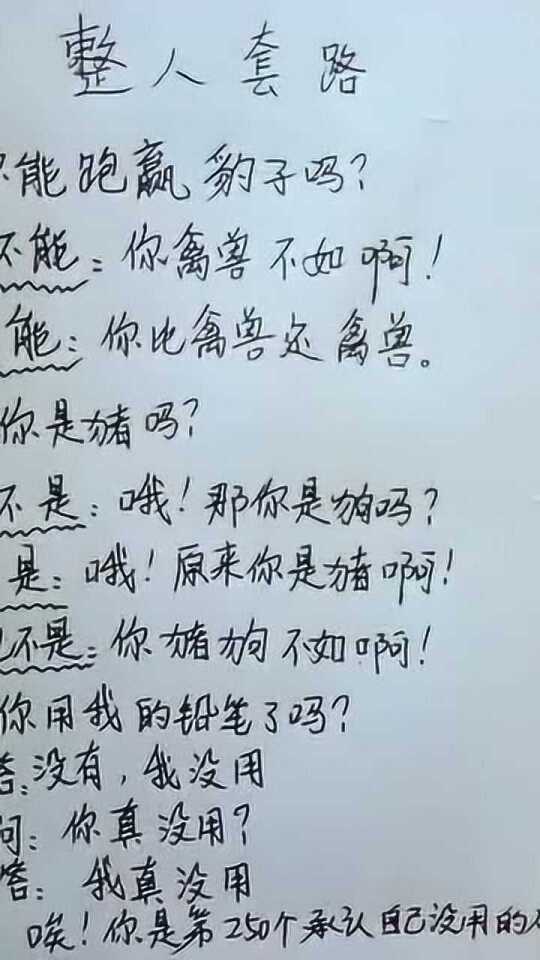 整人套路
能跑赢豹子吗?
不能:你禽兽不如啊!
能:你比禽兽还禽兽。
你是猪吗?
不是:哦!那你是狗吗?
是:哦!原来你是猪啊!
不是:你猪狗不如啊!
你用我的铅笔了吗?
答:没有,我没用
问:你真没用?
答:我真没用
唉!你是第250个承认自己没用的人